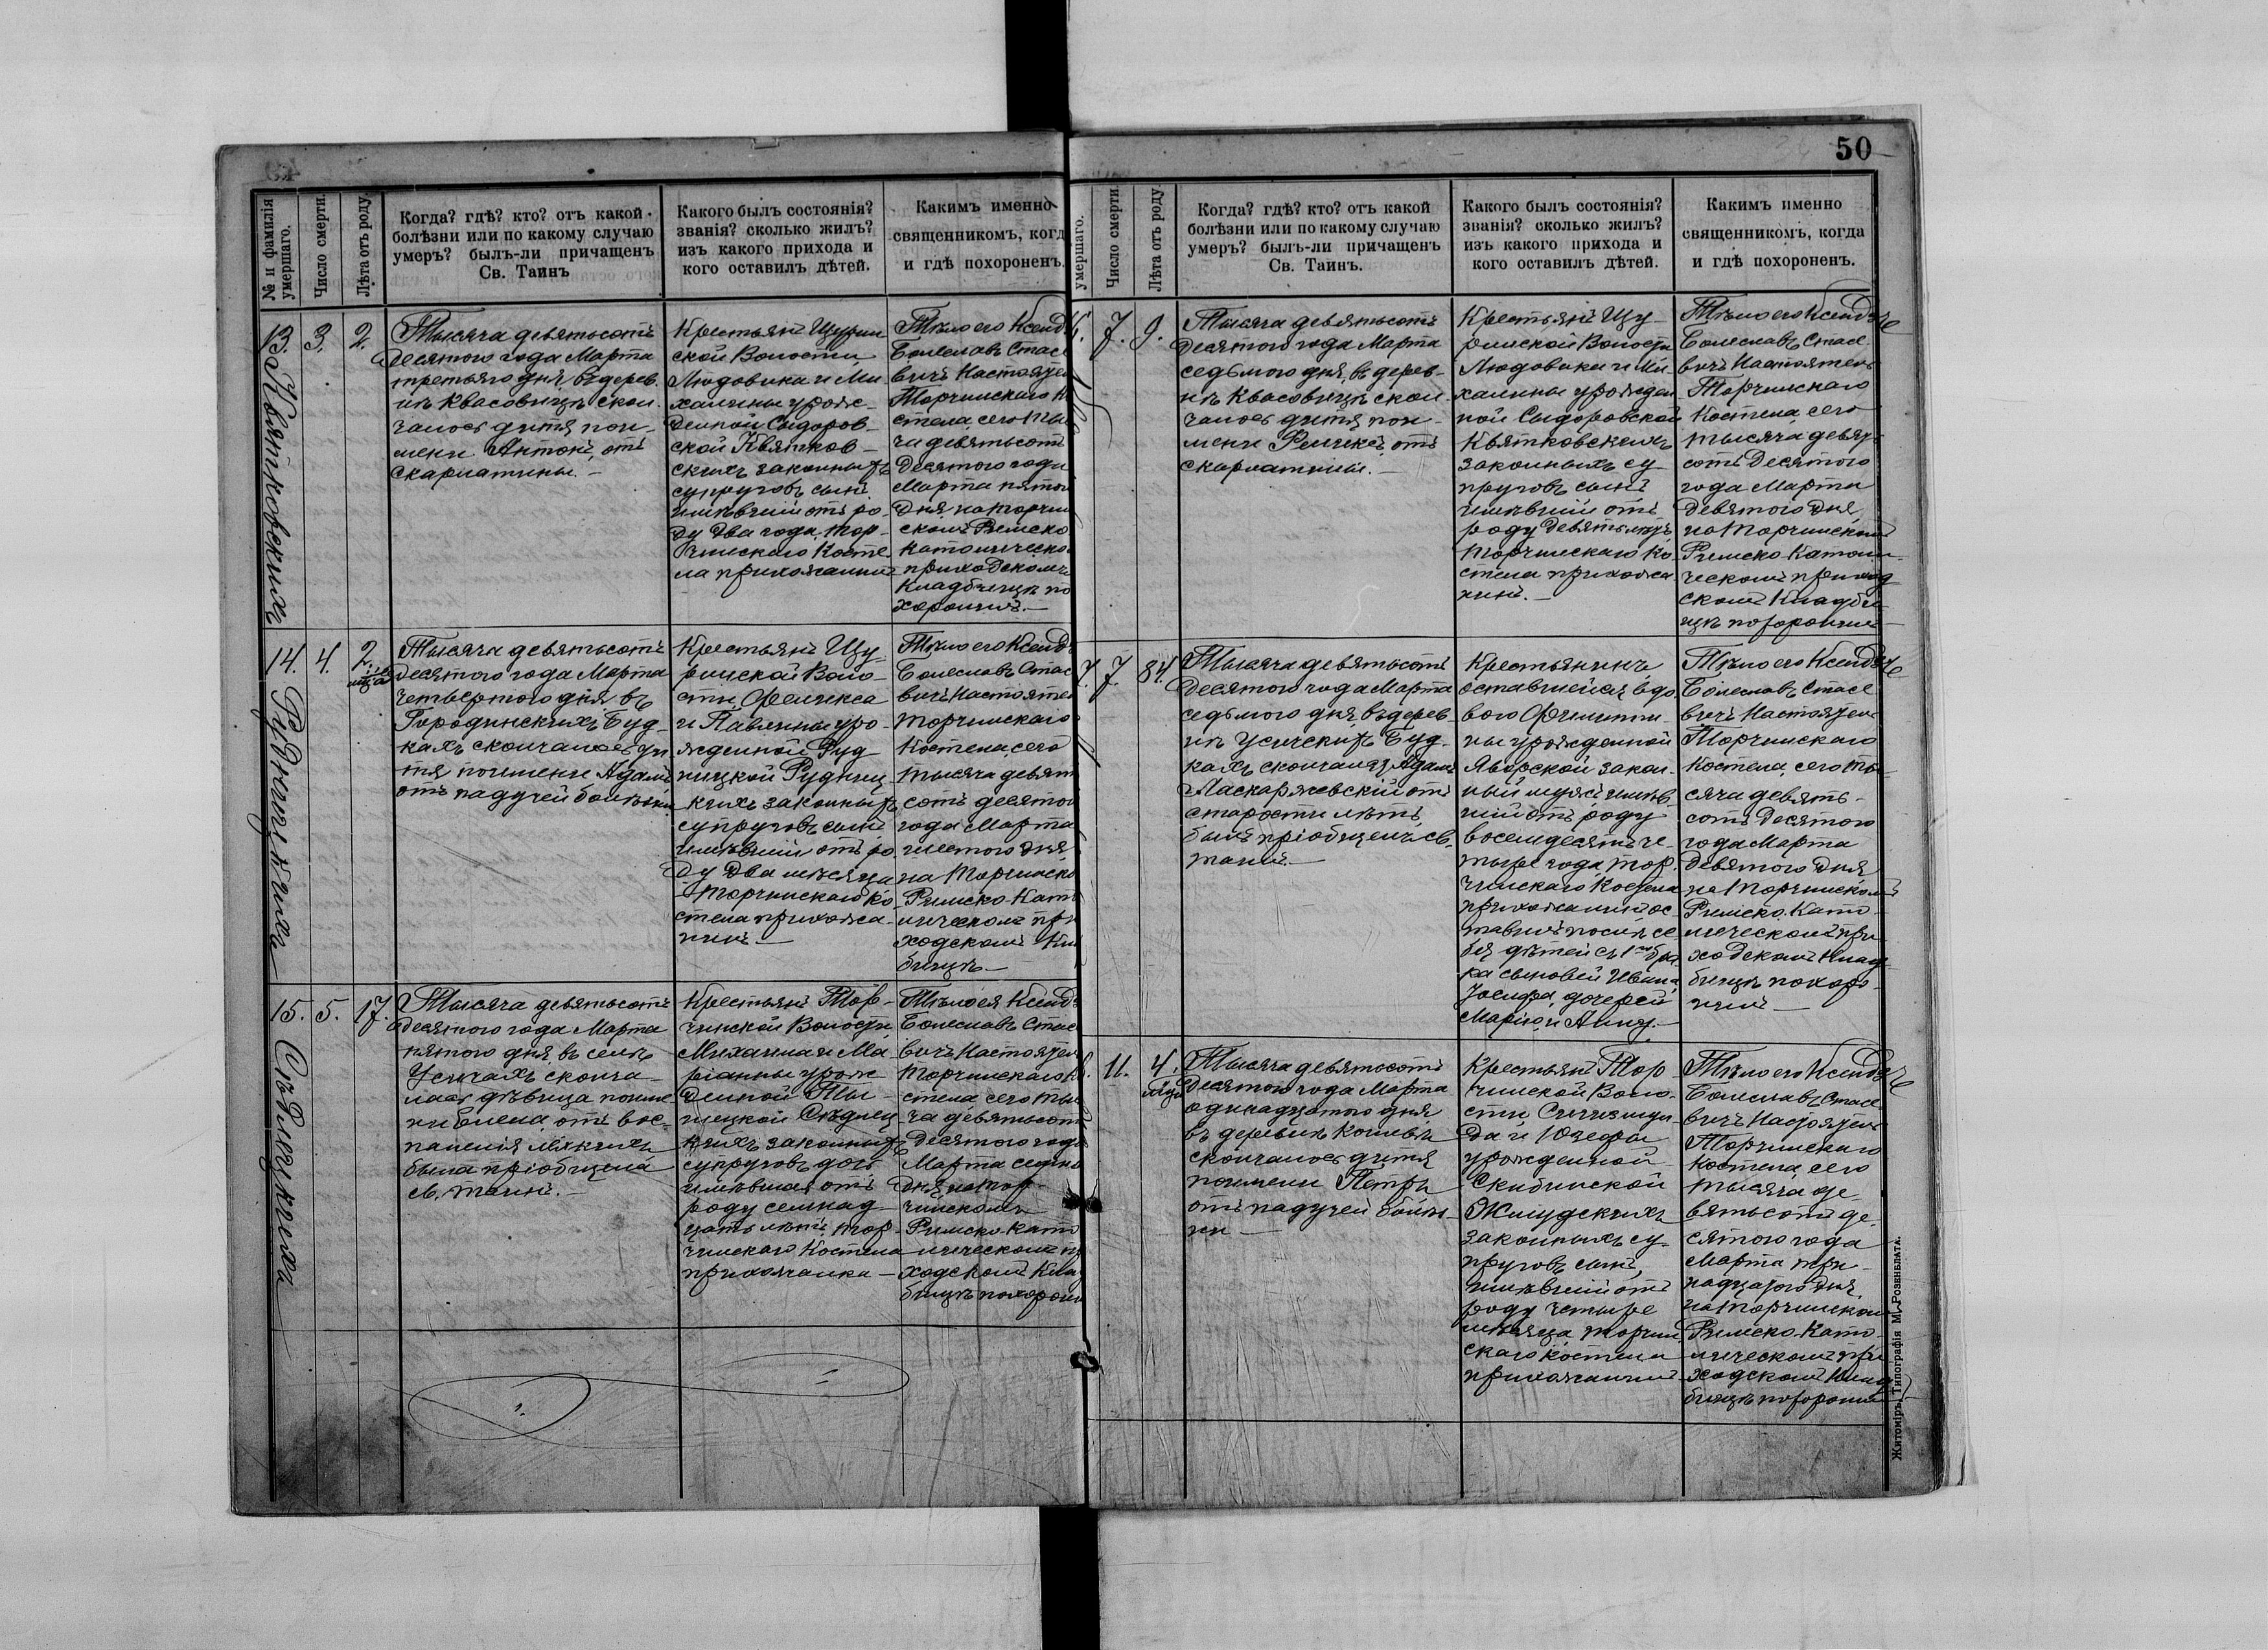 50
№ и фамилія умершаго.
Число смерти.
Лѣта отъ роду.
Когда? гдѣ? кто? отъ какой
болѣзни или по какому случаю
умеръ? былъ-ли причащенъ
Св. Таинъ
Какого былъ состоянія?
званія? сколько жилъ?
изъ какого прихода и
кого оставилъ дѣтей.
Какимъ именно
священникомъ, когд
и гдѣ похороненъ.
13. Квятковскихъ
3.
2.
Тысяча девятьсотъ
десятого года Марта
третьяго дня, въ дерев.
нѣ Квасовицѣ скон.
чалось дитя пои-
мени Антонъ, отъ
скарлатины.—
Крестьянъ Щурин
ской Волости
Людовика и Ми-
халины урож-
денной Сидоров-
ской Квятков-
скихъ законныхъ
супруговъ сынъ
имѣвший отъ ро-
ду два года, Тор-
чинскаго Косте-
ла прихожанинъ
Тѣло его Ксенд
Болеславъ Стас
вичъ Настояте
Торчинскаго К
стела, сего Ты
ча девятьсотъ
десятого года
Марта пятого
дня, на Торчин
скомъ Римско
католическо
приходскомъ
кладбищѣ по
хоронилъ.—
14. Рудницкихъ
4.
2. мца
Тысяча девятьсотъ
десятого года Марта
четвертого дня въ
Городинскихъ Буд-
кахъ скончалось ди
тя поимени Адамъ
отъ падучей болѣзни
Крестьянъ Щу-
ринской Воло-
сти, Феликса
и Павлины уро-
жденной Руд
ницкой Рудниц-
кихъ законныхъ
супруговъ сынъ
имѣвший отъ ро
ду два мѣсяца
Торчинскаго Ко
стела прихожа-
нинъ—
Тѣло его Ксенд
Болеславъ Стас
вичъ Настояте
Торчинскаго
Костела, сего
тысяча девят
сотъ десятого
года Марта
шестого дня
на Торчинско
Римско-Като
лическомъ при
ходскомъ Кла
бищѣ—
15. Сѣдлецкихъ
5.
17.
Тысяча девятьсотъ
десятого года Марта
пятого дня въ селѣ
Усичахъ сконча-
лась дѣвица поиме
ни Елена, отъ вос-
паленія лёгкихъ
была пріобщена
св. таинъ.—
Крестьянъ Тор-
чинской Волости
Михаила и Ма-
ріанны урож
денной
Сѣдлец
кихъ законныхъ
супруговъ дочь
имѣвшая отъ
роду семнад-
цать лѣтъ, Тор-
чинскаго Костела
прихожанка—
Тѣло ея Ксенд
Болеславъ Стас
вичъ Настоятел
Торчинскаго К
стела, сего Тыс
ча девятьсотъ
десятого года
Марта седьмо
дня на Тор-
чинскомъ
Римско-Като
лическомъ пр
ходскомъ Клад
бищѣ похорони
умершаго.
Число смерти.
Лѣта отъ роду.
Когда? гдѣ? кто? отъ какой
болѣзни или по какому случаю
умеръ? былъ-ли причащенъ
Св. Таинъ.
Какого былъ состоянія?
званія? сколько жилъ?
изъ какого прихода и
кого оставилъ дѣтей.
Какимъ именно
священникомъ, когда
и гдѣ похороненъ.
7.
9.
Тысяча девятьсотъ
десятого года Марта
седьмого дня, въ дерев-
нѣ Квасовицѣ скон-
чалось дитя пои-
мени Феликсъ, отъ
скарлатины.—
Крестьянъ Щу-
ринской Волости
Людовика и Ми-
халины урожден
ной Сидоровской
Квятковскихъ
законныхъ су-
пруговъ сынъ
имѣвший отъ
роду девять лѣтъ
Торчинскаго Ко
стела прихожа
нинъ.—
Тѣло его Ксендзъ
Болеславъ Стасе
вичъ Настоятель
Торчинскаго
Костела, сего
тысяча девять
сотъ десятого
года Марта
девятого дня,
на Торчинскомъ
Римско-Католи-
ческомъ приход
скомъ Кладби
щѣ похоронилъ
7.
84.
Тысяча девятьсотъ
десятого года Марта
седьмого дня, въ дерев-
нѣ Усичскихъ Буд-
кахъ скончался Адамъ
Маскаржевскій отъ
старости лѣтъ,
былъ пріобщенъ св.
таинъ.—
Крестьянинъ
оставшейся вдо
вою
урожденной
Яворской закон-
ный мужъ, имѣв-
ший отъ роду
восемдесятъ че-
тыре года, Тор-
чинскаго Костела
прихожанинъ, ос-
тавилъ послѣ се-
бя дѣтей съ 1го бра
ка сыновей Ивана
Іосифа, дочерей
Марію и Анну.—
Тѣло его Ксендзъ
Болеславъ Стасе
вичъ Настоятель
Торчинскаго
Костела, сего ты-
сяча девять-
сотъ десятого
года Марта
девятого дня
на Торчинскомъ
Римско-Като-
лическомъ при
ходскомъ Клад-
бищѣ похоро-
нилъ—
11.
4. мца
Тысяча девятьсотъ
десятого года Марта
одинадцатого дня
въ деревнѣ
скончалось дитя
поимени Петръ
отъ падучей болѣз-
ни—
Крестьянъ Тор
чинской Воло-
сти Сигизмун
да и Юзефы
урожденной
Скибинской
Жмудскихъ
законныхъ су-
пруговъ сынъ,
имѣвший отъ
роду четыре
мѣсяца Торчин
скаго Костела
прихожанинъ
Тѣло его Ксендзъ
Болеславъ Стасе
вичъ Настоятель
Торчинскаго
Костела, сего
тысяча де-
вятьсотъ де-
сятого года
Марта три-
надцатого дня
на Торчинскомъ
Римско-Като-
лическомъ при
ходскомъ Клад
бищѣ похоронилъ
Житоміръ, Типографія М. Розенблата.